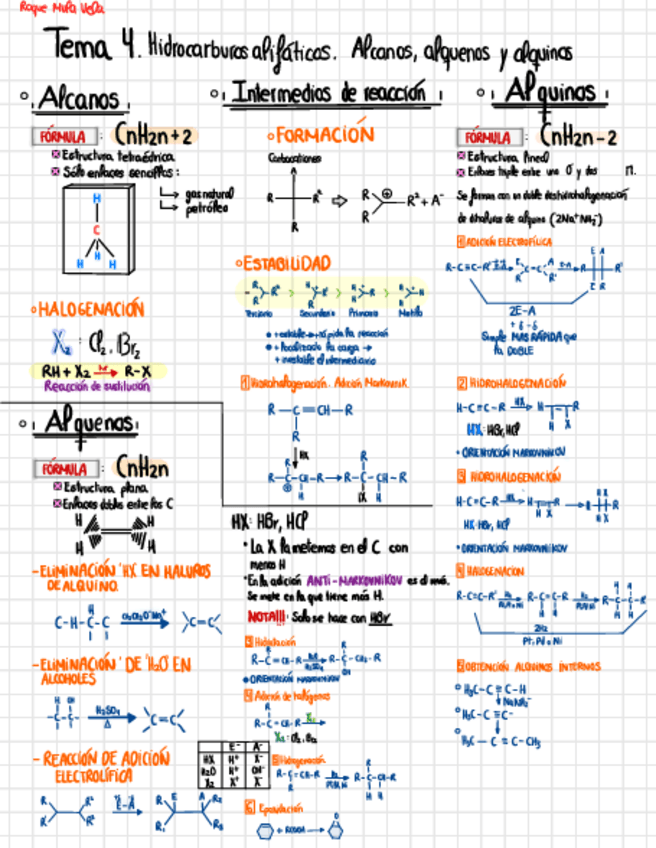 Roque Mula Vela
Tema 4. Hidrocarburos alifáticos. Alcanos, alquenos y alquinos
Alcanos
FÓRMULA: CnH2n+2
Estructura tetraédrica
Sólo enlaces sencillos:
gas natural
petróleo
H
C
H H H
HALOGENACIÓN
X2 : Cl2, Br2
RH + X2 → R-X
Reacción de sustitución
Alquenos
FÓRMULA: CnH2n
Estructura plana
Enlaces dobles entre los C
H H
H H
- ELIMINACIÓN HX EN HALUROS
DE ALQUINO.
C-H-C-C
C=C
- ELIMINACIÓN DE H2O EN
ALCOHOLES
H OH
-C-C-
H2SO4
Δ
C=C
- REACCIÓN DE ADICIÓN
ELECTROLÍFICA
E-A
Intermedios de reacción
FORMACIÓN
Carbocationes
R R R2
R
R R2 + A-
R
ESTABILIDAD
Terciario Secundario Primario Metilo
+ estable → + rápida la reacción
+ localizada la carga →
+ inestable el intermediario
1 Hidrohalogenación. Adición Markovnik
R-C=CH-R
R
HX
R-C-CH-R → R-C-CH-R
HX: HBr, HCl
La X la metemos en el C con
menos H
En la adición ANTI-MARKOVNIKOV es al
Se mete en la que tiene más H.
NOTA!!! Solo se hace con HBr
3 Hidratación
R-C=CH-R
H2SO4
ORIENTACIÓN MARKOVNIKOV
4 Adición de halógenos
R-C=CH-R
X2: Cl2, Br2
E- A-
HX H+ X-
H2O H+ OH-
X2 X+ X-
5 Hidrogenación
R-C=CH-R
R-C-CH-R
H H
6 Epoxidación
+ RCOOH →
Alquinos
FÓRMULA: CnH2n-2
Estructura lineal
Enlaces triple entre uno σ y dos π.
Se forman con un doble deshidrohalogenación
de dihaluros de alquino (2Na+NH2-)
1 ADICIÓN ELECTROFÍLICA
R-C≡C-R'
2E-A
Simple MAS RÁPIDA que
la DOBLE
2 HIDROHALOGENACIÓN
H-C≡C-R
HX
HX: HBr, HCl
ORIENTACIÓN MARKOVNIKOV
3 HIDROHALOGENACIÓN
H-C≡C-R
HX: HBr, HCl
ORIENTACIÓN MARKOVNIKOV
4 HALOGENACIÓN
R-C≡C-R'
2H2
Pt, Pd o Ni
OBTENCIÓN ALQUINOS INTERNOS
H3C-C≡C-H
NaNH2
H3C-C≡C-
H3C-C≡C-CH3